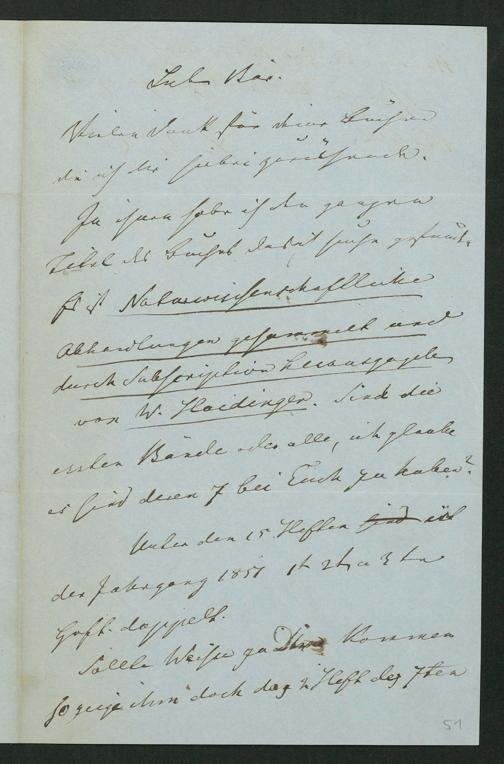 Lieber Bär.
Vielen Dank für deine Bücher
die ich dir hiebei zurücksende.
In ihnen habe ich den ganzen
Titel des Buches gefunden.
Es ist Naturwissenschaftliche
Abhandlungen gesammelt und
durch Subscription herausgegeben
von W. Haidinger. Sind die
ersten Bände oder alle, ich glaube
es sind deren 7 bei Euch zu haben?
Unter den 15 Heften sind
der Jahrgang 1851 1t 2t u 3tn
Heft doppelt.
Sollte Weisse zu Dir kommen
so zeige ihm doch das 2 Heft des 7ten
51